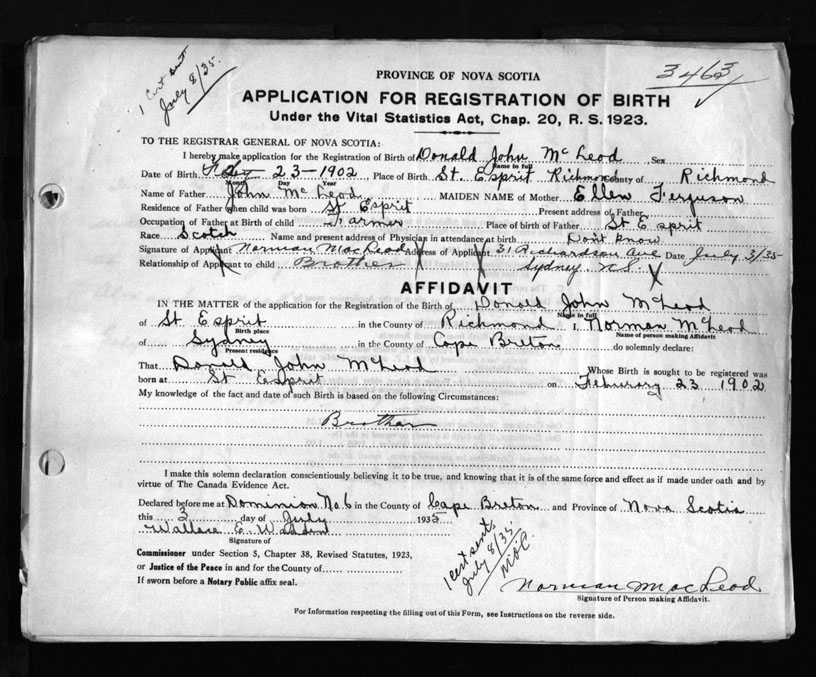 1 Cert sent
July 8/35.
3463
PROVINCE OF NOVA SCOTIA
APPLICATION FOR REGISTRATION OF BIRTH
Under the Vital Statistics Act, Chap. 20, R. S. 1923.
TO THE REGISTRAR GENERAL OF NOVA SCOTIA:
I hereby make application for the Registration of Birth of Donald John McLeod Sex
Name in full
Date of Birth Feby 23-1902 Place of Birth St Esprit Richmond County of Richmond
Month Day Year
Name of Father John McLeod MAIDEN NAME of Mother Ellen Ferguson
Residence of Father when child was born St Esprit Present address of Father
Occupation of Father at Birth of child Farmer Place of birth of Father St Esprit
Race Scotch Name and present address of Physician in attendance at birth Don't know
Signature of Applicant Norman MacLeod Address of Applicant 31 Richardson Ave Date July 3/35
Relationship of Applicant to child Brother Sydney N.S.
AFFIDAVIT
IN THE MATTER of the application for the Registration of the Birth of Donald John McLeod
Name in full
of St Esprit in the County of Richmond 1, Norman McLeod
Birth place Name of person making Affidavit
of Sydney in the County of Cape Breton do solemnly declare:
Present residence
That Donald John McLeod Whose Birth is sought to be registered was
born at St Esprit on Feburary 23 1902
My knowledge of the fact and date of such Birth is based on the following Circumstances:
Brother
I make this solemn declaration conscientiously believing it to be true, and knowing that it is of the same force and effect as if made under oath and by
virtue of The Canada Evidence Act.
Declared before me at Dominion No 6 in the County of Cape Breton and Province of Nova Scotia
this 3 day of July 1935
Wallace E
Signature of
1 cert sent.
July 8/35
Commissioner under Section 5, Chapter 38, Revised Statutes, 1923,
or Justice of the Peace in and for the County of
If sworn before a Notary Public affix seal.
Norman MacLeod
Signature of Person making Affidavit.
For Information respecting the filling out of this Form, see Instructions on the reverse side.